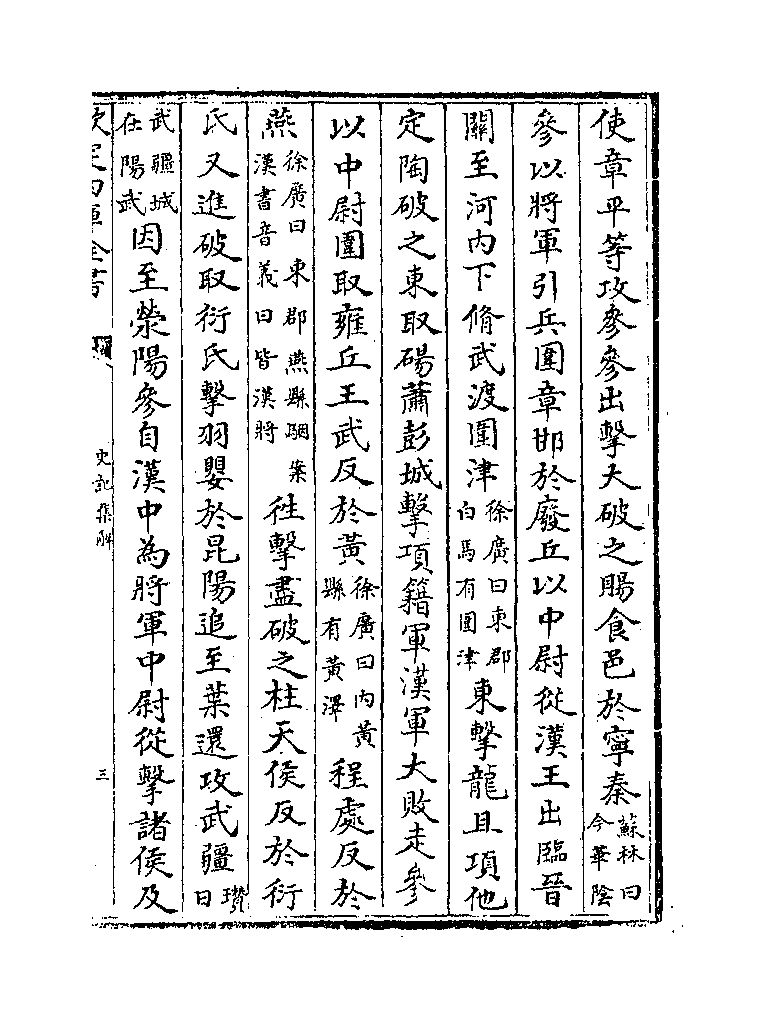 使章平等攻參參出擊大破之賜食邑於寧秦蘇林曰今華陰
參以將軍引兵圍章邯於廢丘以中尉從漢王出臨晉
關至河內下脩武渡圍津徐廣曰東郡白馬有圍津東擊龍且項他
定陶破之東取碭蕭彭城擊項籍軍漢軍大敗走參
以中尉圍取雍丘王武反於黃徐廣曰內黃縣有黃澤程處反於
燕徐廣曰東郡燕縣駰案漢書音義曰皆漢將往擊盡破之柱天侯反於衍
氏又進破取衍氏擊羽嬰於昆陽追至葉還攻武疆瓚曰
武疆城在陽武因至滎陽參自漢中為將軍中尉從擊諸侯及
欽定四庫全書
史記集解
三